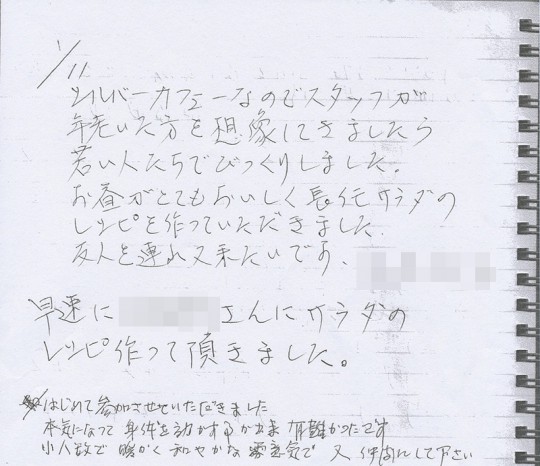 1/11
シルバーカフェーなのでスタッフが
年老いた方を想像してきましたら
若い人たちでびっくりしました。
お昼がとてもおいしく長位サラダの
レシピを作っていただきました。
友人を連れ又来たいです、
早速に さんにサラダの
レシピ作って頂きました。
はじめて参加させていただきました
本気になって身体を動かする 有難かったです
小人数で 暖かく和やかな 雰意気で 又 仲間にして下さい